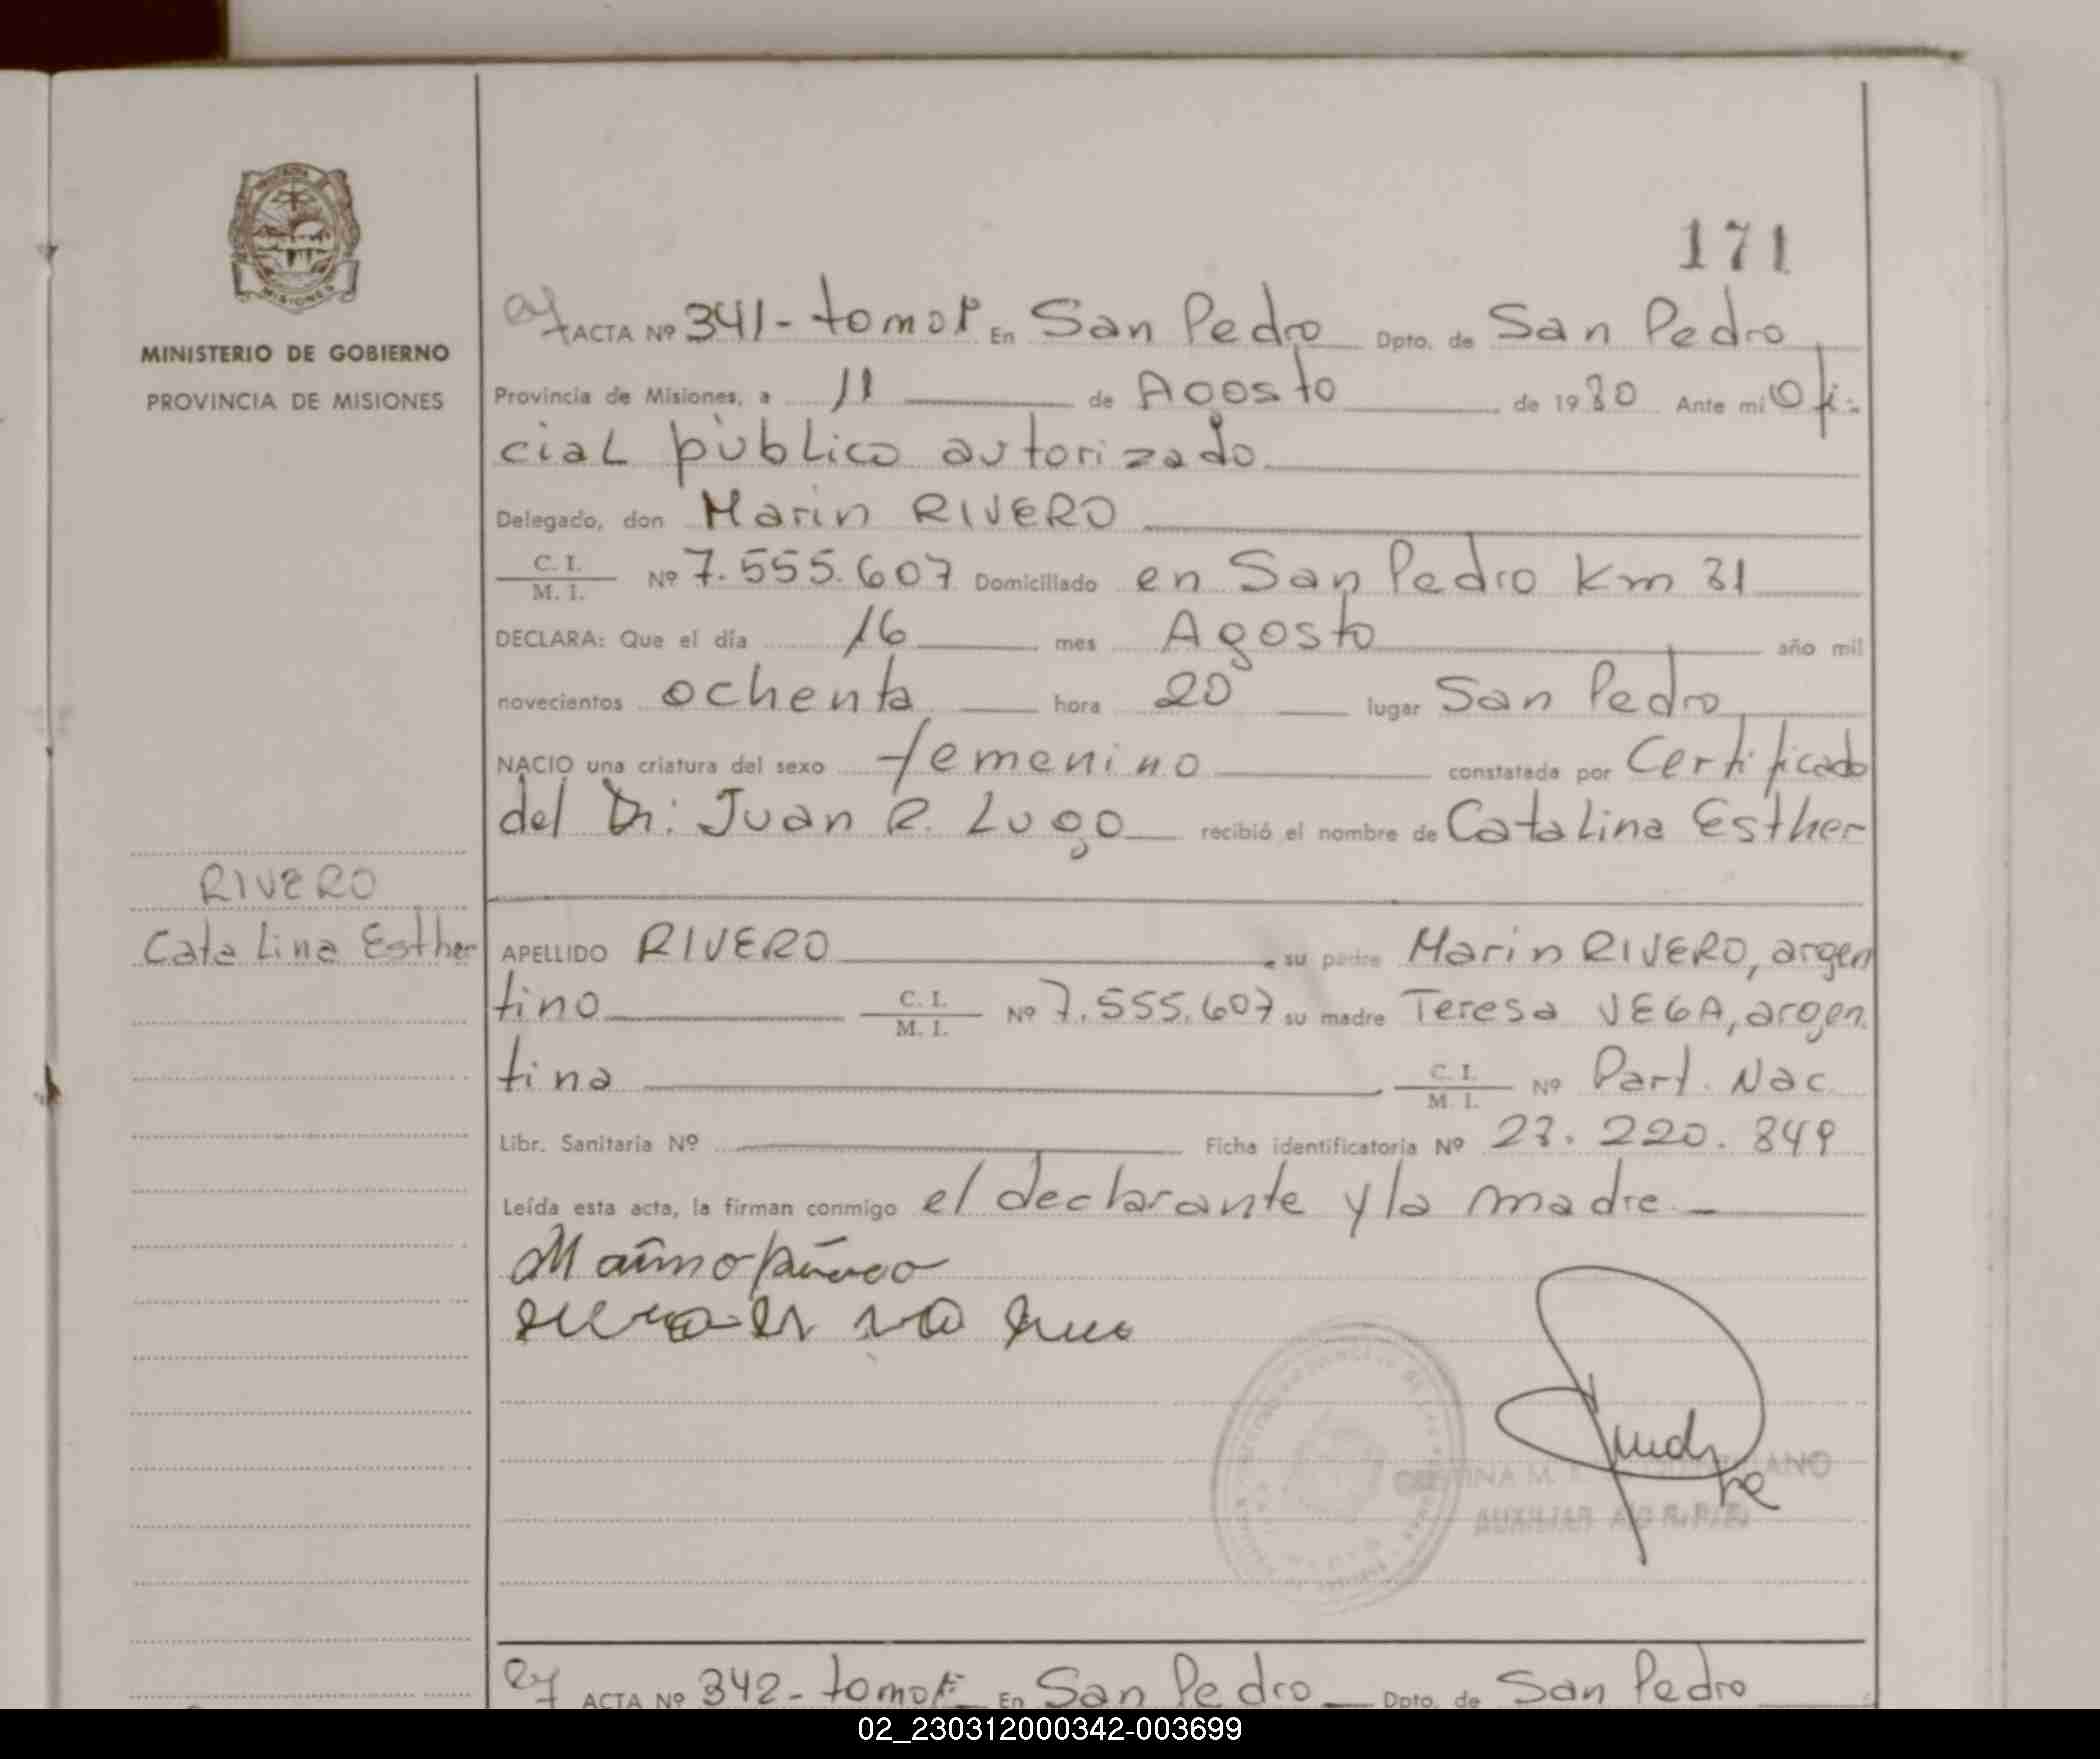 171
MISIONES
MINISTERIO DE GOBIERNO
PROVINCIA DE MISIONES
ACTA Nº 341- tomo 1º En San Pedro Dpto. de San Pedro
Provincia de Misiones, a 11 de Agosto de 1980 Ante mi Ofi-
cial público autorizado
Delegado, don Marin RIVERO
C. I. / M. I. Nº 7.555.607 Domiciliado en San Pedro Km 31
DECLARA: Que el día 16 mes Agosto año mil
novecientos ochenta hora 20 lugar San Pedro
NACIO una criatura del sexo femenino constatada por Certificado
del Dr: Juan R. Lugo recibió el nombre de Catalina Esther
RIVERO
Catalina Esther
APELLIDO RIVERO su padre Marin RIVERO, argen
tino C. I. / M. I. Nº 7.555.607 su madre Teresa VEGA, argen.
tina C. I. / M. I. Nº Part. Nac
Libr. Sanitaria Nº Ficha identificatoria Nº 23. 220. 849
Leída esta acta, la firman conmigo el declarante y la madre.-
AUXILIAR
ACTA Nº 342- tomo 1º En San Pedro Dpto. de San Pedro
02_230312000342-003699